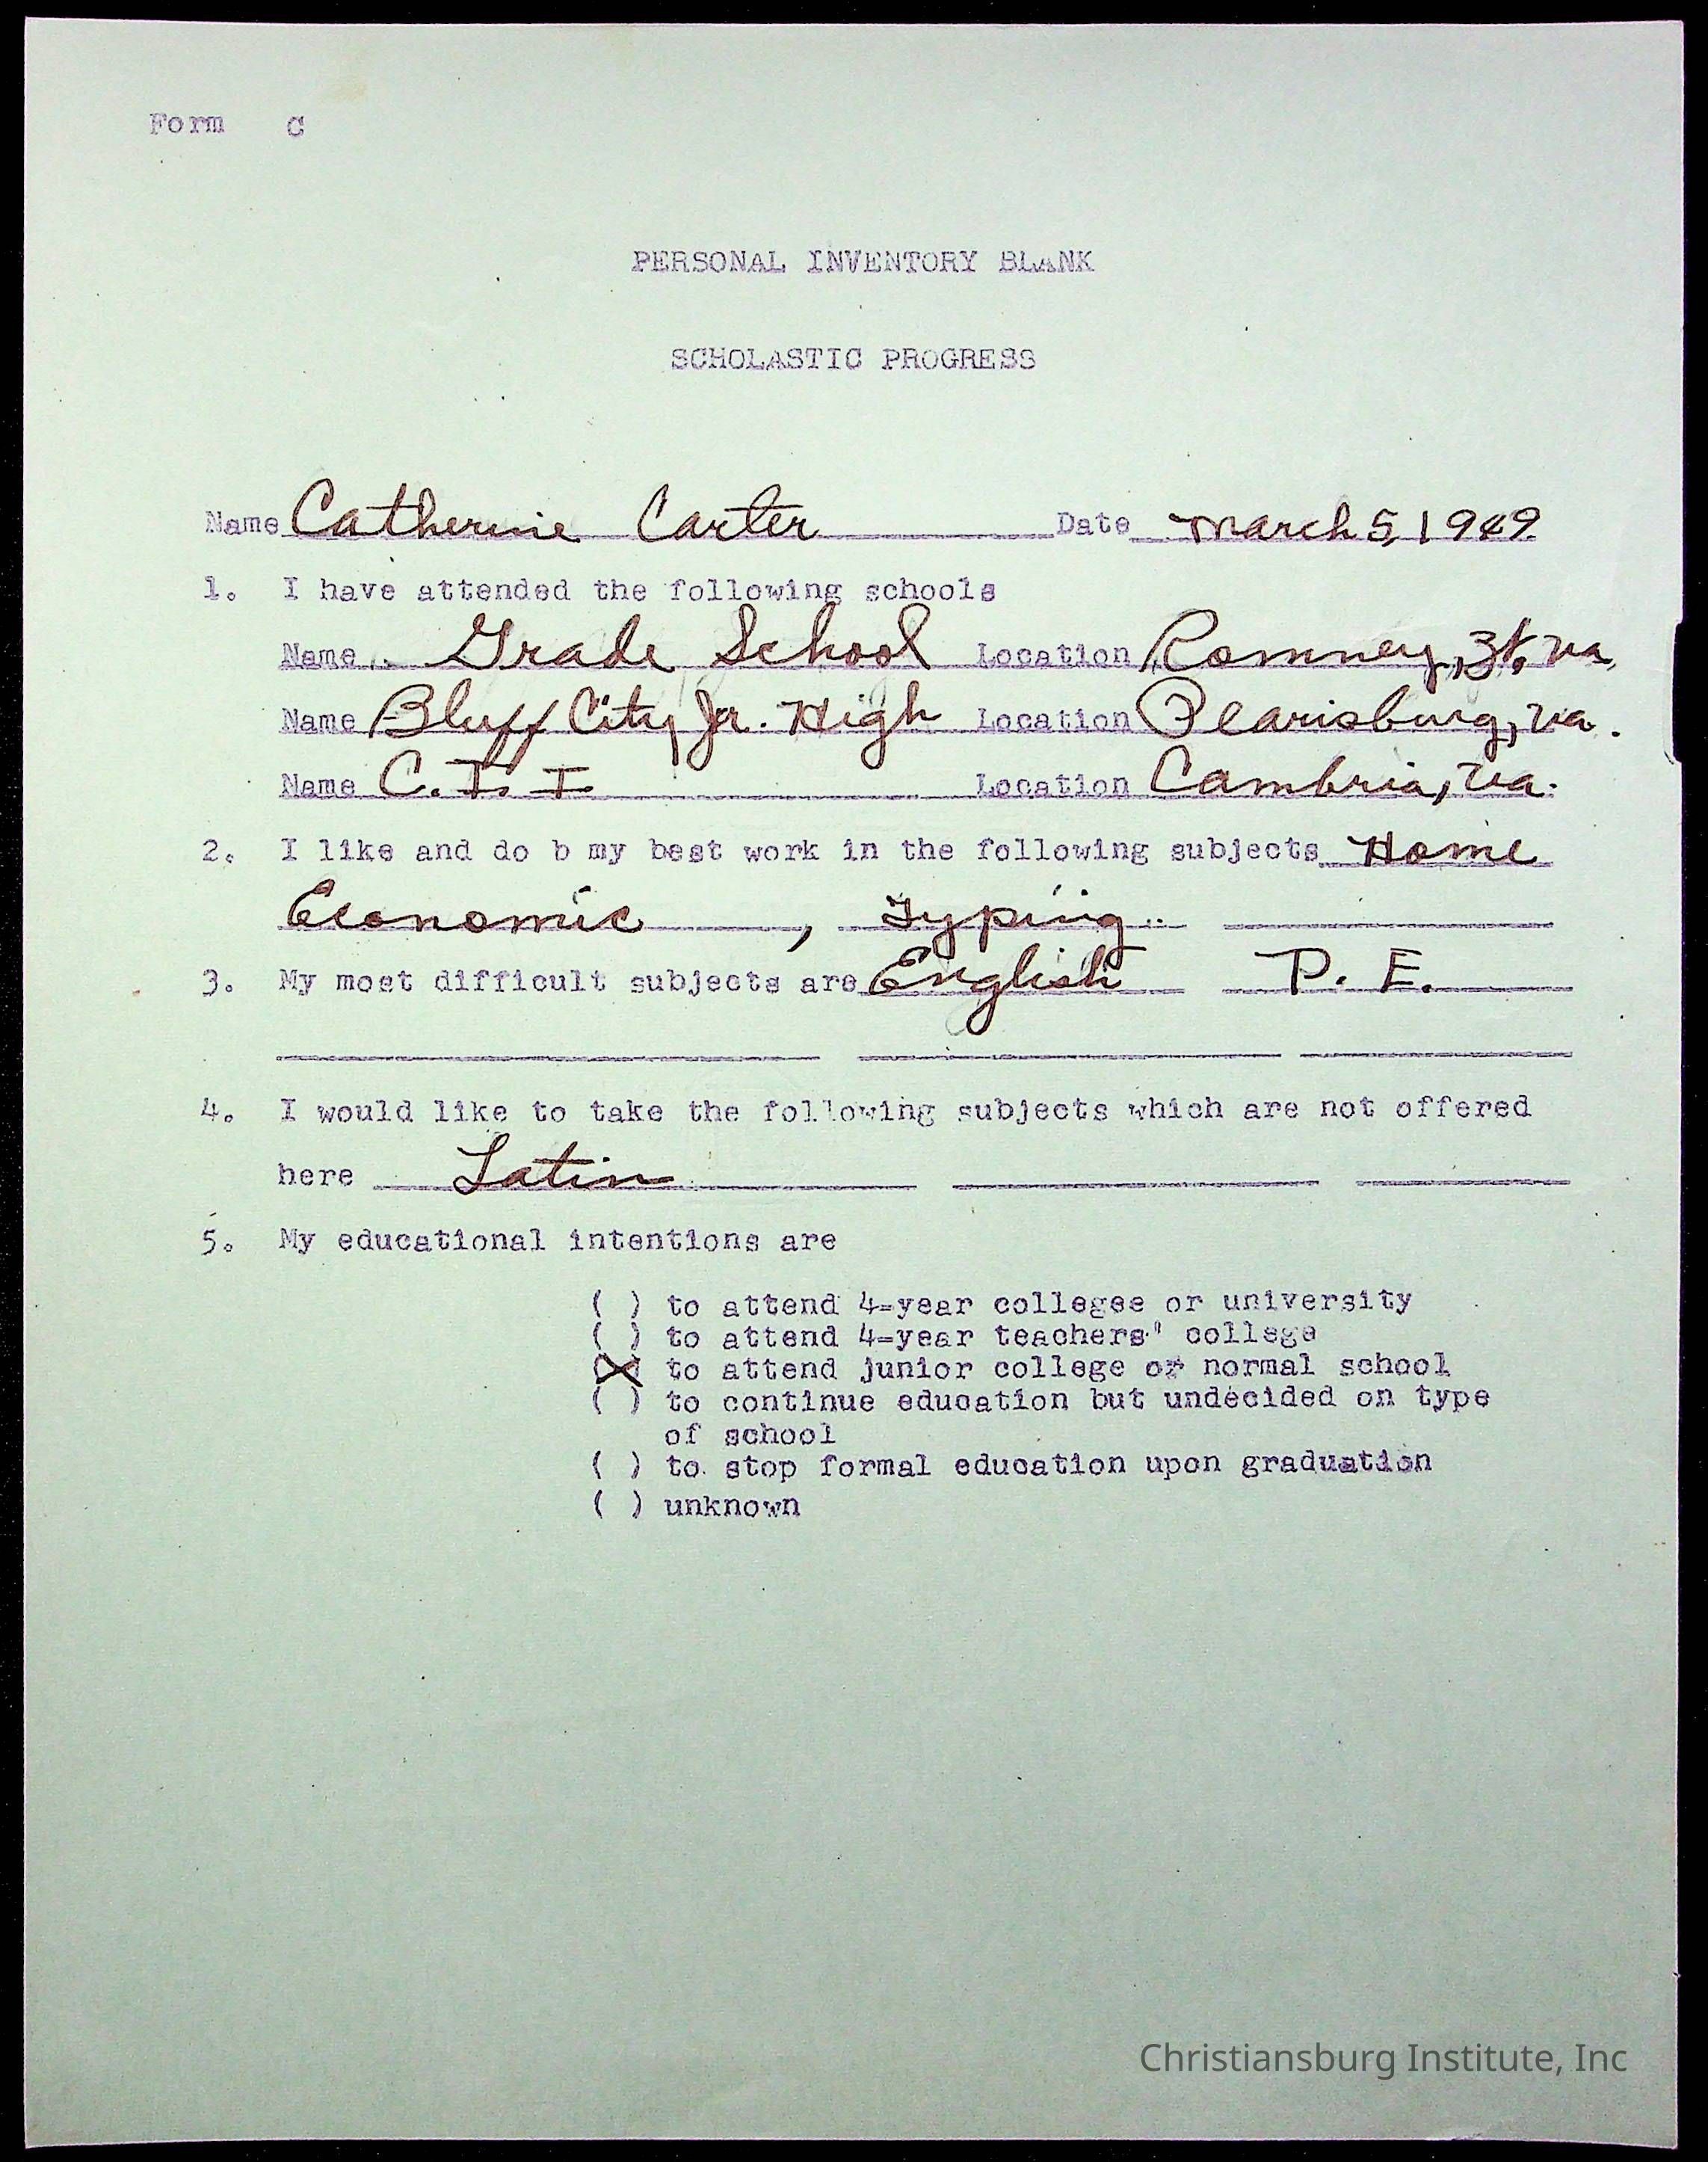 Form C
PERSONAL INVENTORY BLANK
SCHOLASTIC PROGRESS
Name Catherine Carter Date March 5, 1949
1. I have attended the following schools
Name Grade School Location Romney, Va,
Name Bluff City Jr. High Location Pearisburg, Va.
Name C. I. Location Cambria, Va.
2. I like and do b my best work in the following subjects Home
Economic , Typing
3. My most difficult subjects are English P. E.
4. I would like to take the following subjects which are not offered
here Latin
5. My educational intentions are
( ) to attend 4-year colleges or university
( ) to attend 4-year teachers' college
(X) to attend junior college or normal school
( ) to continue education but undecided on type
of school
( ) to stop formal education upon graduation
( ) unknown
Christiansburg Institute, Inc